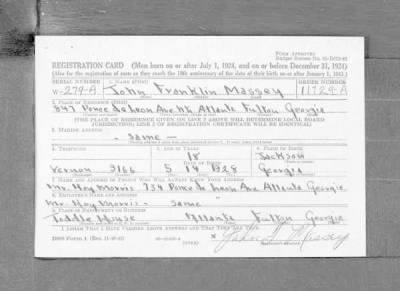 FORM APPROVED
REGISTRATION CARD (Men born on or after July 1, 1924, and on or before December 31, 1924)
(Also for the registration of men as they reach the 18th anniversary of the date of their birth on or after January 1, 1925.)
SERIAL NUMBER 1. NAME (Print) ORDER NUMBER
W-279-A John Franklin Massey 11729-A
2. PLACE OF RESIDENCE (Print)
847 Ponce de Leon Ave NE Atlanta Fulton Georgia
[THE PLACE OF RESIDENCE GIVEN ON LINE 2 ABOVE WILL DETERMINE LOCAL BOARD
JURISDICTION; LINE 2 OF REGISTRATION CERTIFICATE WILL BE IDENTICAL]
3. MAILING ADDRESS
- Same -
4. TELEPHONE 5. AGE IN YEARS 6. PLACE OF BIRTH
18 Jackson
DATE OF BIRTH
Vernon 9166 5 14 1928 Georgia
7. NAME AND ADDRESS OF PERSON WHO WILL ALWAYS KNOW YOUR ADDRESS
Mr. Hoy Morris 734 Ponce de Leon Ave Atlanta Georgia
8. EMPLOYER'S NAME AND ADDRESS
Mr. Hoy Morris - Same
9. PLACE OF EMPLOYMENT OR BUSINESS
Toddle House Atlanta Fulton Georgia
I AFFIRM THAT I HAVE VERIFIED ABOVE ANSWERS AND THAT THEY ARE TRUE.
DSS Form 1
John F. Massey